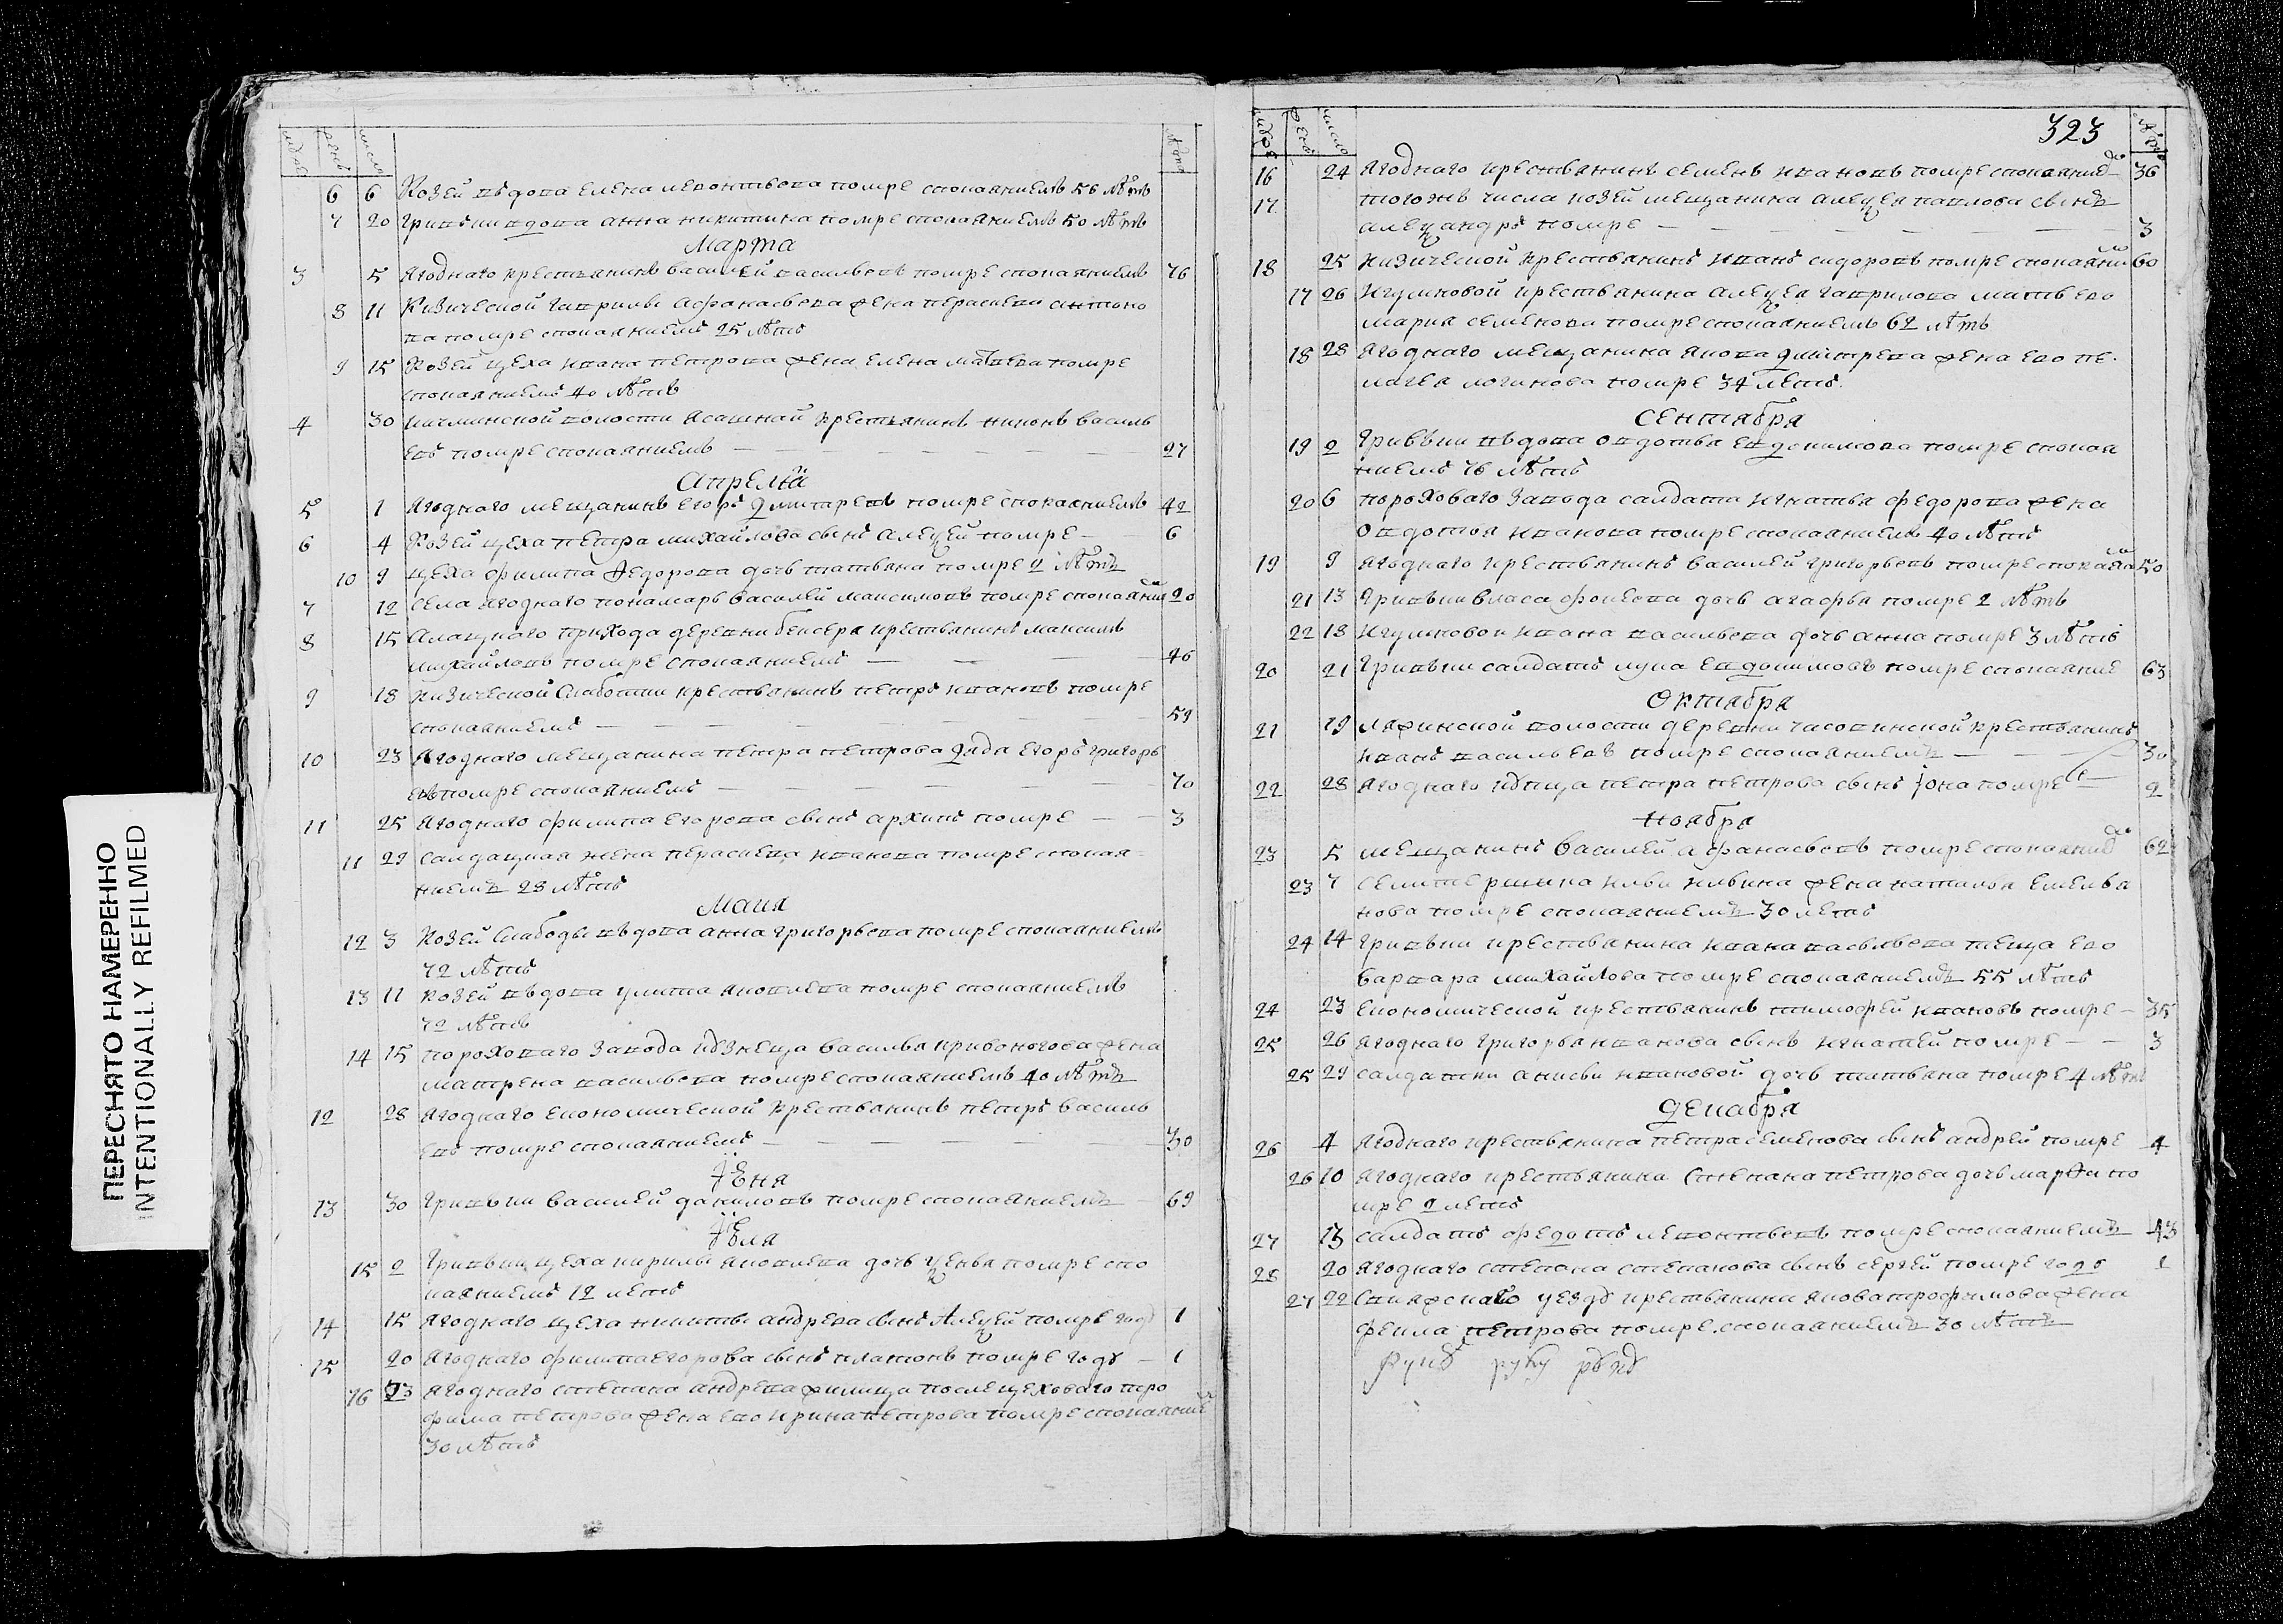 ПЕРЕСНЯТО НАМЕРЕННО
INTENTIONALLY REFILMED
число
6 6 Козей вдова елена леонтьева помре спокаяниемъ 56 лѣтъ
7 20 Гривъки вдова анна никитина помре спокаяниемъ 50 лѣтъ
Марта
3 5 Ягоднаго крестьянинъ василей васильевъ помре спокаяниемъ 76
8 11 Кизической гаврилы афанасьева жена параскева антоно
ва помре спокаяниемъ 25 лѣтъ
9 15 Козей цеха ивана петрова жена елена матвева помре
спокаяниемъ 40 лѣтъ
4 30 волости ясашнай крестьянинъ никонъ василь
евъ помре спокаяниемъ 27
Апреля
5 1 Ягоднаго мещанинъ егоръ дмитревъ помре спокаяниемъ 42
6 4 Козей цеха петра михайлова сынъ алеѯей помре 6
10 9 цеха филипа федорова дочь татьяна помре 2 лѣтъ
7 12 села ягоднаго понамарь василей максимовъ помре спокаяни 20
8 15 прихода деревни крестьянинъ максимъ
михайловъ помре спокаяниемъ 46
9 18 кизической слаботки крестьянинъ петръ ивановъ помре
спокаяниемъ 59
10 23 Ягоднаго мещанина петра петрова дядя егоръ григорь
евъ помре спокаяниемъ 70
11 25 ягоднаго филипа егорова сынъ архипъ помре 3
11 29 салдацкая жена параскева иванова помре спокая
ниемъ 28 лѣтъ
Маия
12 3 Козей слабоды вдова анна григорьева помре спокаяниемъ
72 лѣтъ
13 11 козей вдова улита яковлева помре спокаяниемъ
72 лѣтъ
14 15 пороховаго завода кузнеца василья кривоногова жена
матрена васильева помре спокаяниемъ 40 лѣтъ
12 28 ягоднаго економической крестьянинъ петръ василь
евъ помре спокаяниемъ 30
Іюня
13 30 Гривъки василей даниловъ помре спокаяниемъ 69
Іюля
15 2 Гривъки цеха кирилы яковлева дочь ѯенья помре спо
каяниемъ 12 летъ
14 15 Ягоднаго цеха никиты андрева сынъ Алеѯей помре году 1
15 20 Ягоднаго филипа егорова сынъ платонъ помре году 1
16 23 Ягоднаго степана андрева жилица цеховаго тро
фима петрова жена ево ирина петрова помре спокаяние
30 лѣтъ
323
число
16 24 Ягоднаго крестьянинъ семенъ ивановъ помре спокаяние 36
17 тогожъ числа козей мещанина алеѯея павлова сынъ
алеѯандръ помре 3
18 25 кизической крестьянинъ иванъ сидоровъ помре спокаяни 60
17 26 Игумновой крестьянина алеѯея гаврилова мать ево
мария семенова помре спокаяниемъ 62 лѣтъ
18 28 ягоднаго мещанина якова дмитрева жена ево пе
лагея логинова помре 34 летъ
Сентября
19 2 Гривъки вдова овдотья евдокимова помре спокая
ниемъ 76 лѣтъ
20 6 пороховаго завода салдата игнатья федорова жена
овдотья иванова помре спокаяниемъ 40 лѣтъ
19 9 ягоднаго крестьянинъ василей григорьевъ помре спокаяни 50
21 13 Гривъки власа дочь агафья помре 2 лѣтъ
22 18 Игумновой ивана васильева дочь анна помре 3 лѣтъ
20 21 Гривъки салдатъ лука евдокимовъ помре спокаяние 63
Октября
21 19 волости деревни крестьянинъ
иванъ васильевъ помре спокаяниемъ 30
22 28 Ягоднаго купца петра петрова сынъ іона помре 2
Ноября
23 5 мещанинъ василей афанасьевъ помре спокаяние 62
23 7 ильи ильина жена наталья емелья
нова помре спокаяниемъ 30 летъ
24 14 Гривъки крестьянина ивана васильева теща ево
варвара михайлова помре спокаяниемъ 55 лѣтъ
24 23 Економической крестьянинъ тимофей ивановъ помре 35
25 26 ягоднаго григорья иванова сынъ игнатей помре 3
25 29 салдатки анисьи ивановой дочь татьяна помре 4 лѣтъ
Декабря
26 4 Ягоднаго крестьянина петра семенова сынъ андрей помре 4
26 10 ягоднаго крестьянина степана петрова дочь марфа по
мре 2 летъ
27 13 салдатъ федотъ леонтьевъ помре спокаяниемъ 43
28 20 ягоднаго степана степанова сынъ сергей помре году 1
27 22 Свияжскаго уезду крестьянина якова трофимова жена
фекла петрова помре спокаяниемъ 30 лѣтъ
руку